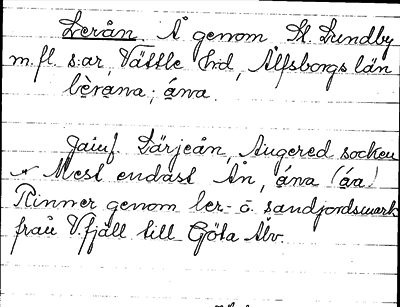 Lerån. Å genom St. Lundby
m. fl. s:ar, Vättle hrd, Älfsborgs län
lèrana, ána.
Jämf. Lärjeån, Angered socken
Mest endast Ån, ána (áa)
Rinner genom ler- o. sandjordsmark
från V.fjäll till Göta Älv.